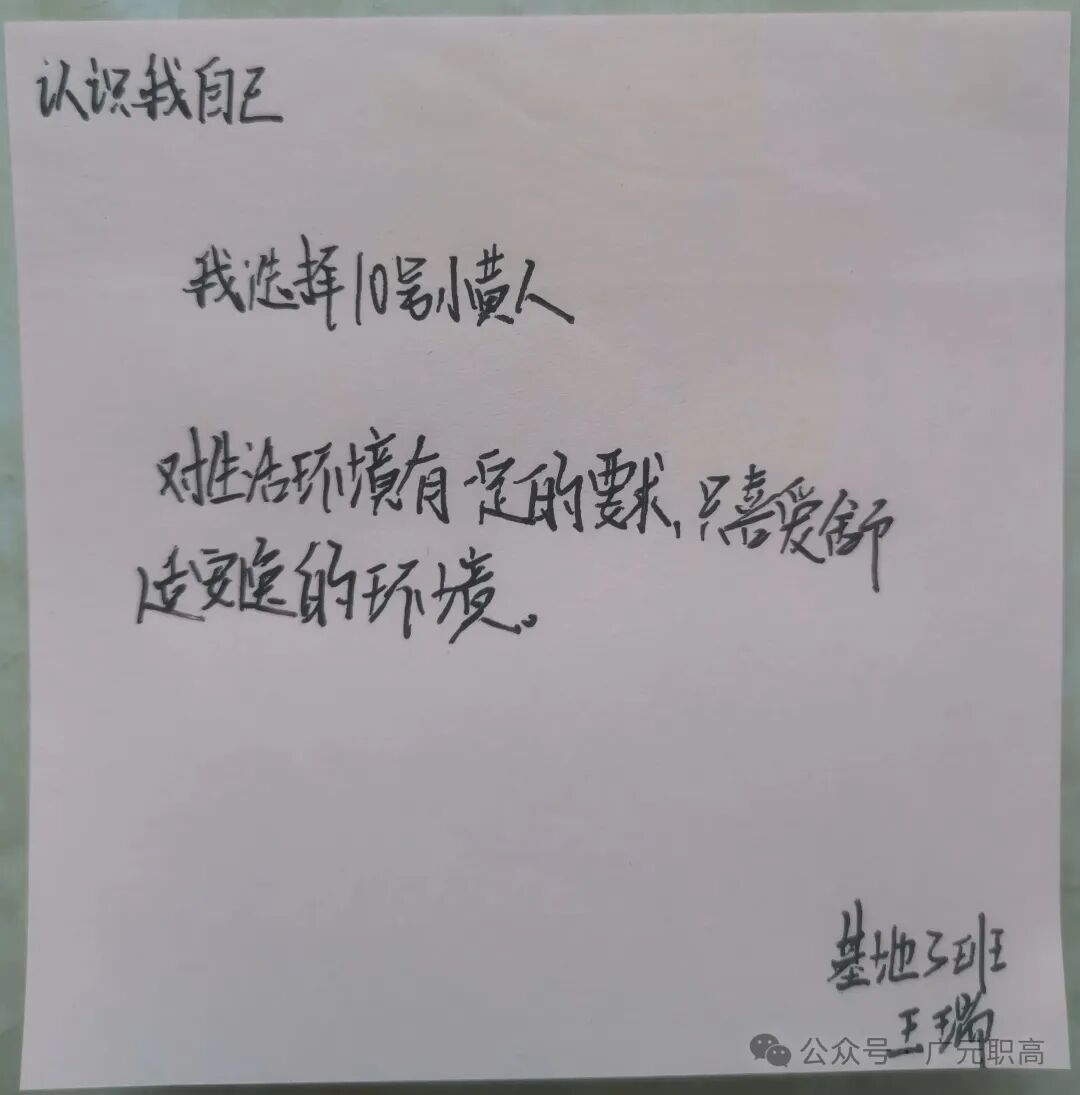 认识我自己
我选择10号小黄人
对生活环境有一定的要求,只喜爱舒
适安逸的环境。
基地3班
王瑞
公众号 广元职高